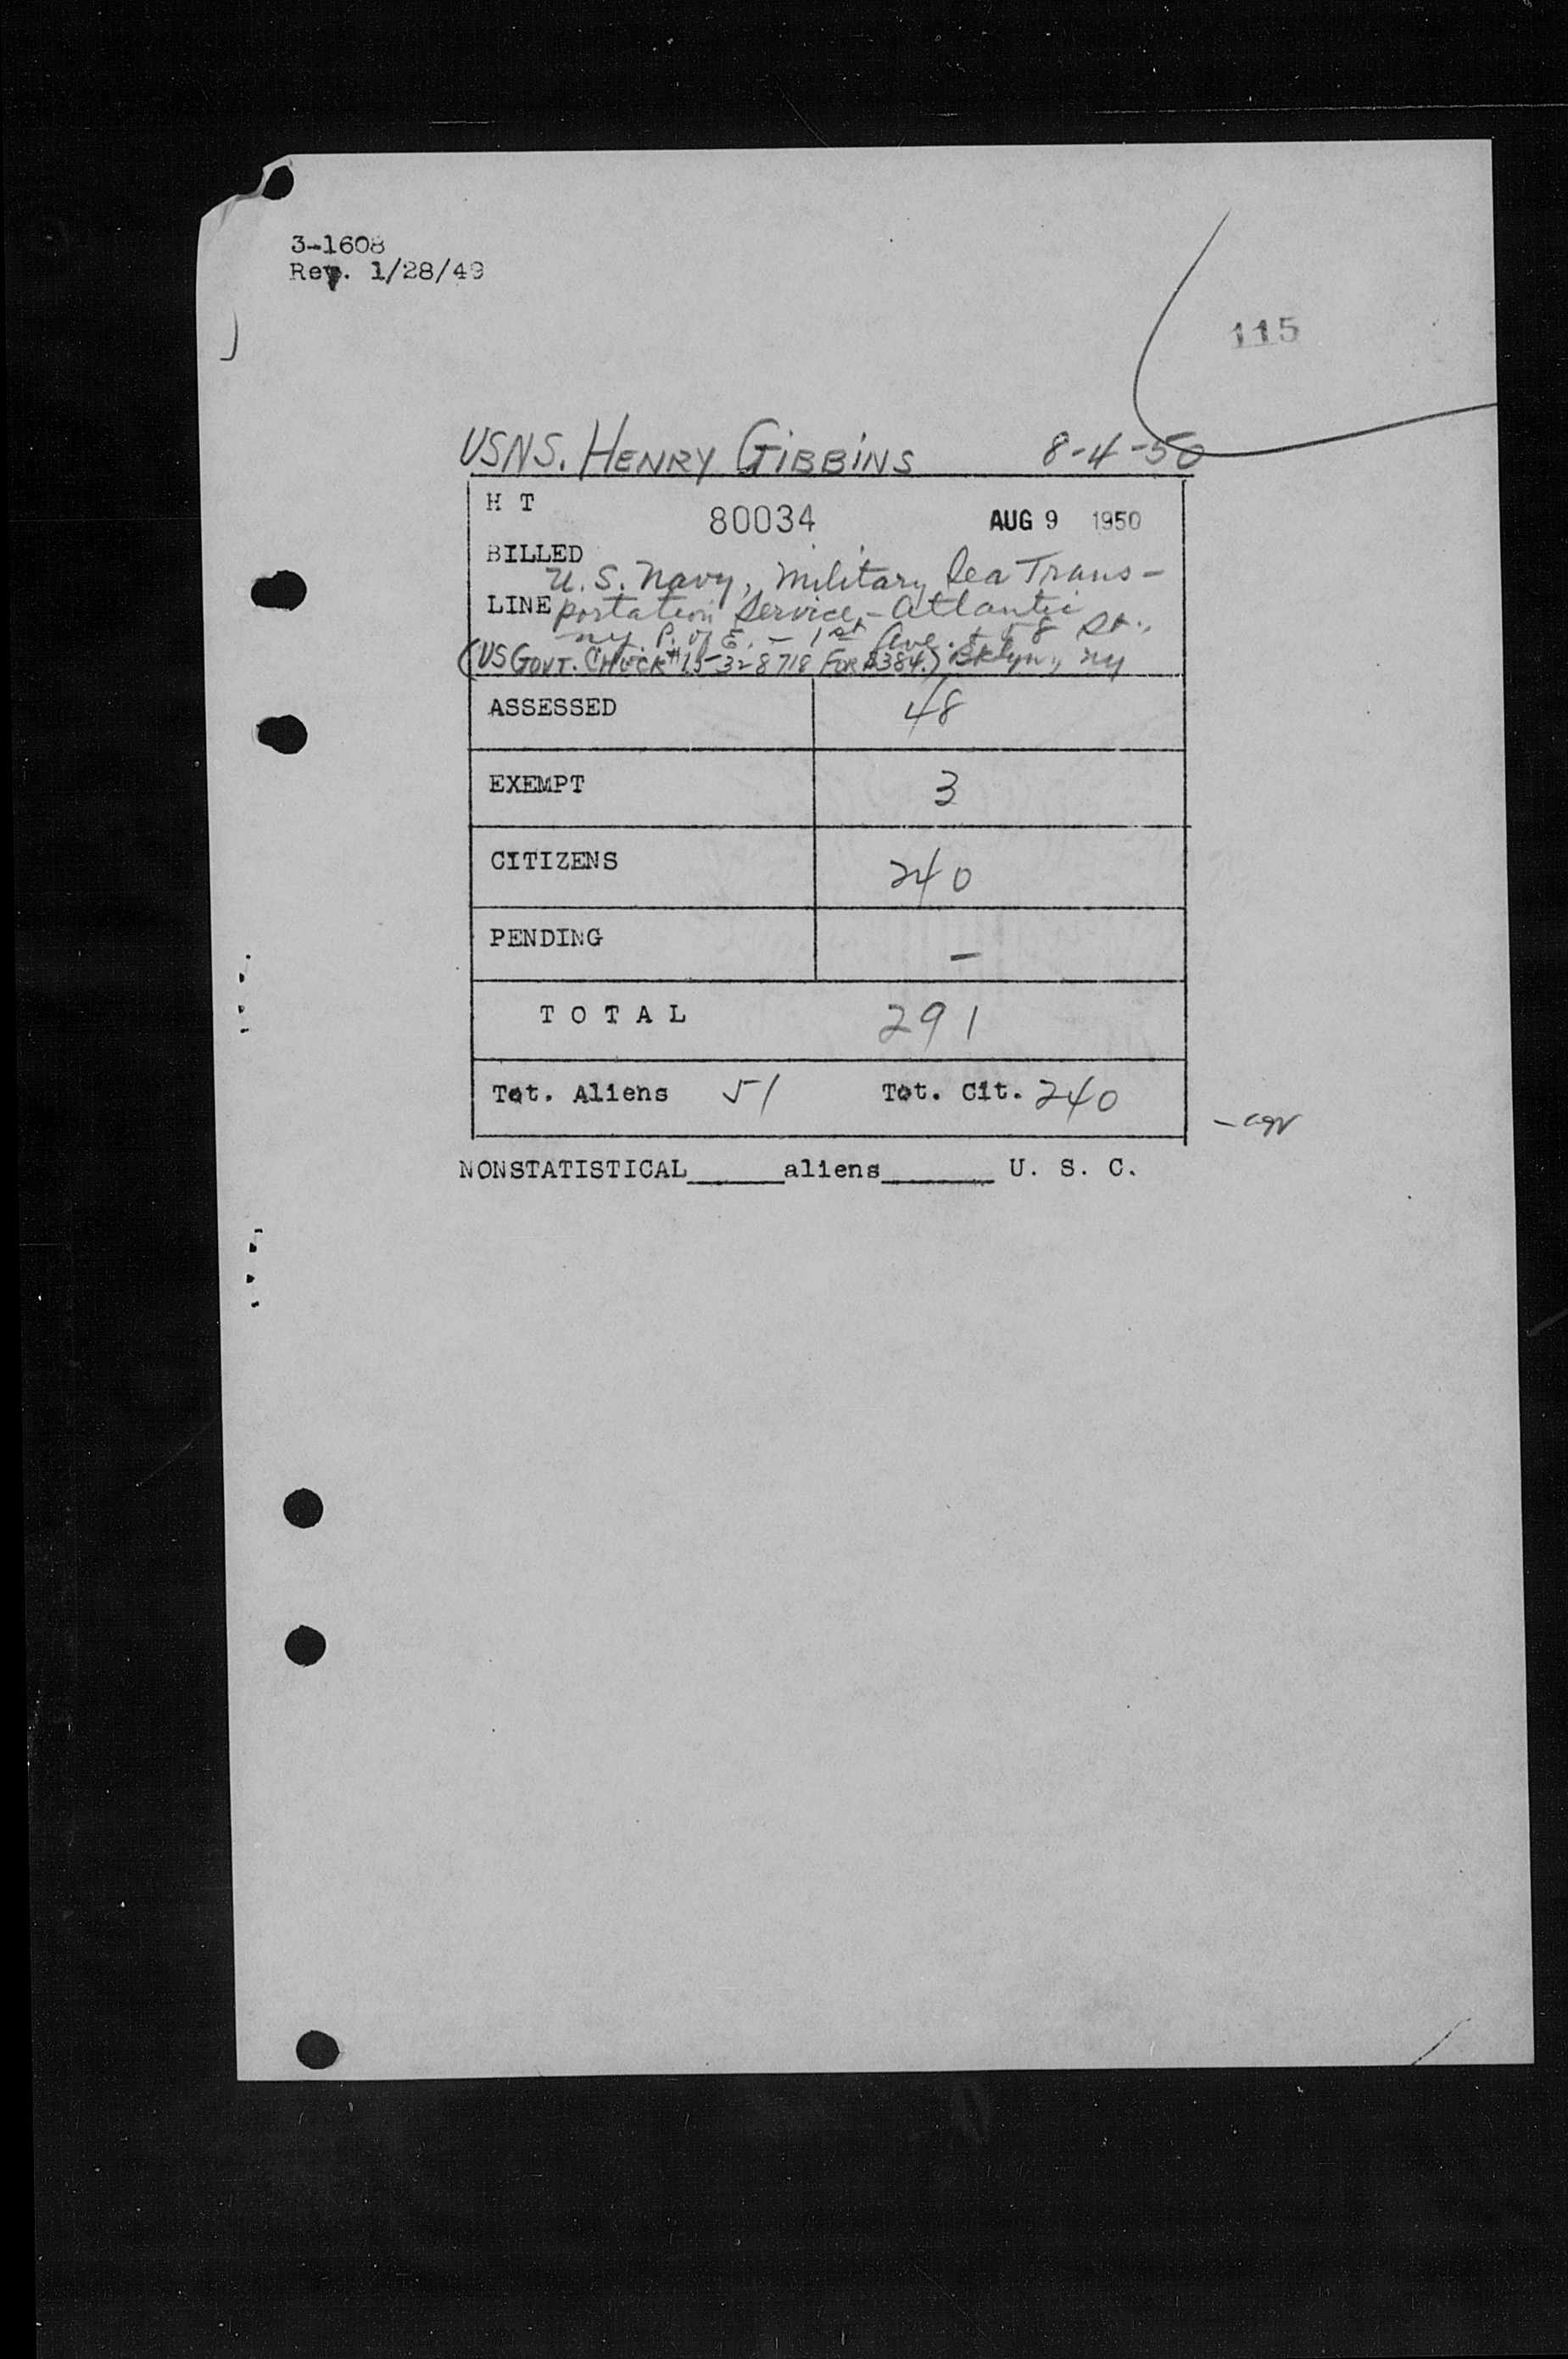 3-1608
Rev. 1/28/49
115
USNS. HENRY GIBBINS 8-4-50
H T 80034 AUG 9 1950
BILLED
U.S. Navy, Military Sea Trans-
LINE portation Service, - Atlantic
N.Y. P. of E. - 1st Ave. + 58 St.,
(US GOVT. CHECK #15-328718 FOR $384.) Bklyn., NY
ASSESSED 48
EXEMPT 3
CITIZENS 240
PENDING -
TOTAL 291
Tot. Aliens 51 Tot. Cit. 240
NONSTATISTICAL_____aliens______ U. S. C.